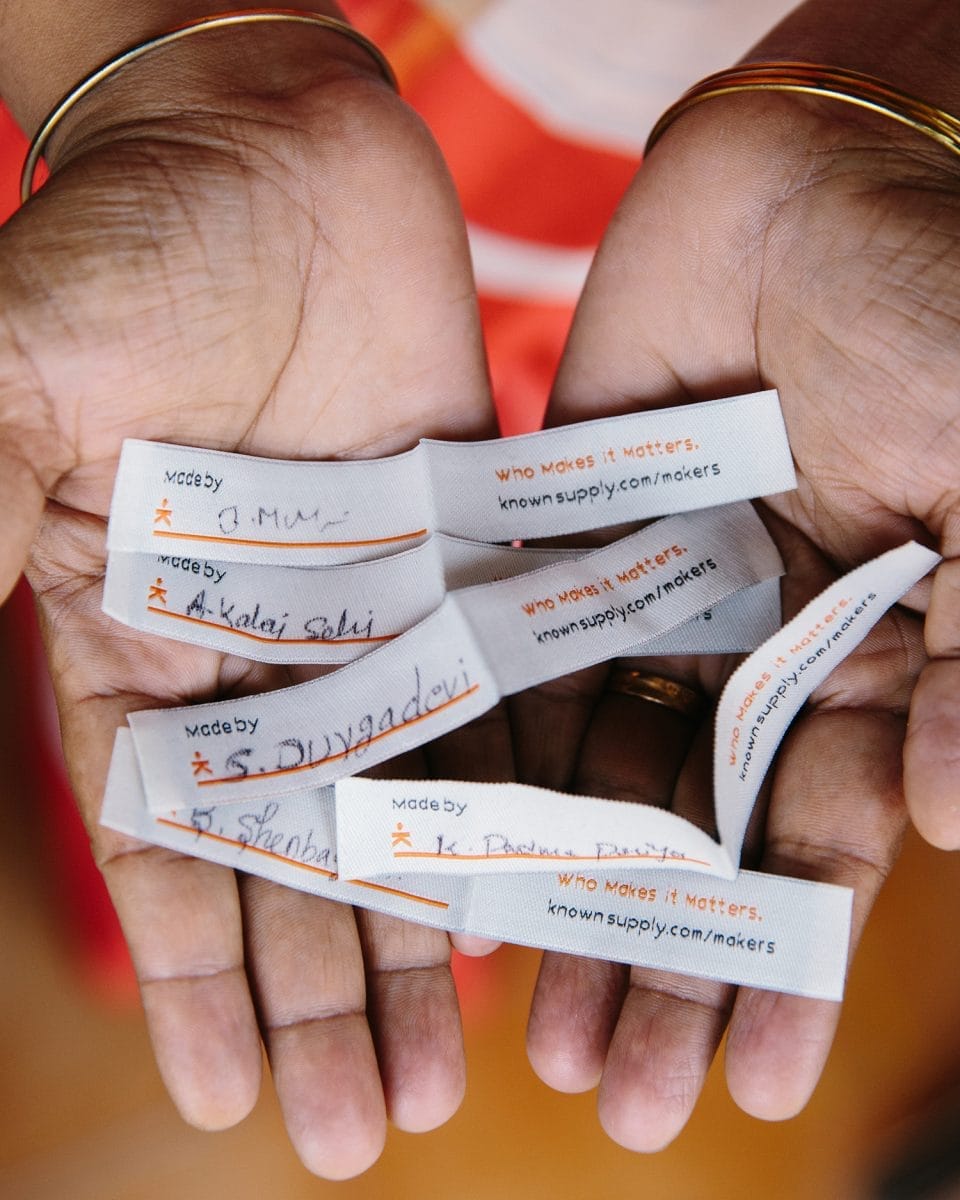 Made by
Who Makes it Matters.
knownsupply.com/makers
Made by
A. Kalai Selvi
Made by
S. Durgadevi
Who Makes it Matters.
knownsupply.com/makers
Who Makes it Matters.
knownsupply.com/makers
Made by
K.
Who Makes it Matters.
knownsupply.com/makers